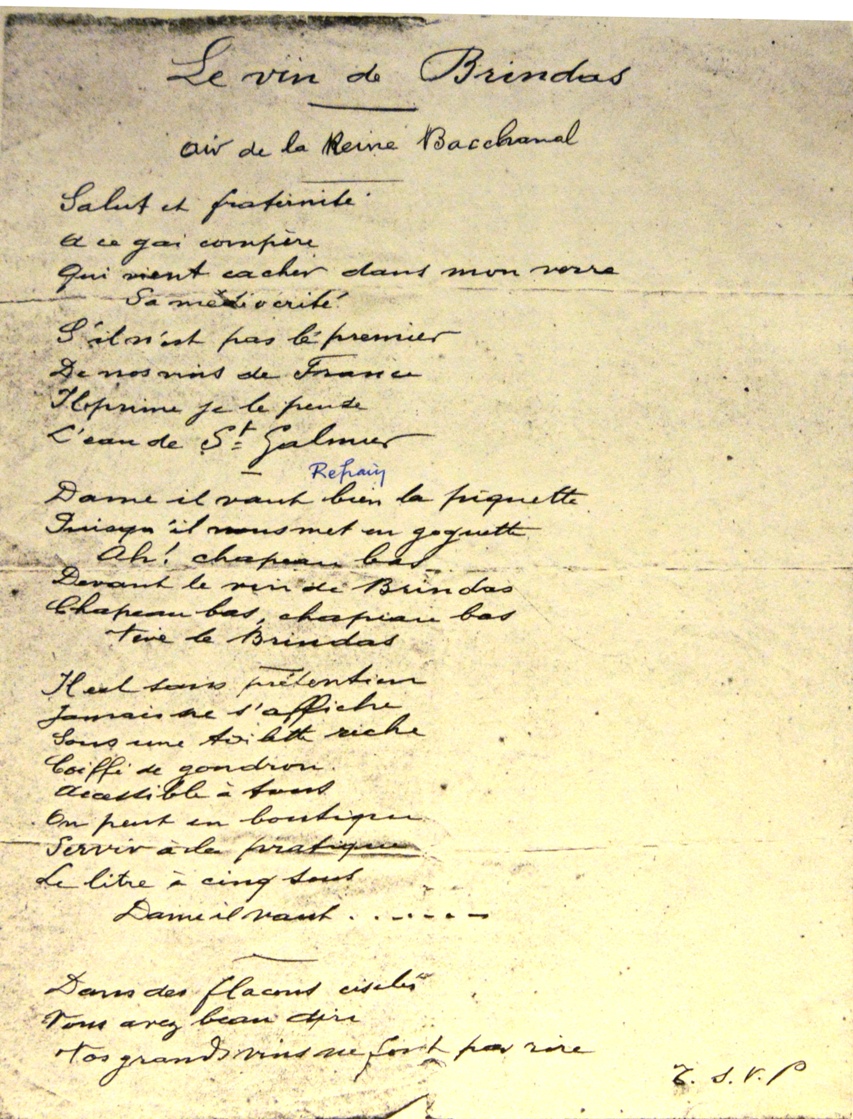 Le vin de Brindas
air de la Reine Bacchanal
Salut et fraternité
A ce gai compère
Qui vient cacher dans mon verre
Sa médiocrité
S'il n'est pas le premier
De nos vins de France
Il prime je le pense
L'eau de St Galmier
Refrain
Dame il vaut bien la piquette
Puisqu'il nous met en goguette
Ah! chapeau bas
Devant le vin de Brindas
Chapeau bas, chapeau bas
Vive le Brindas
Il est sans prétention
Jamais ne s'affiche
Sous une toilette riche
Coiffé de goudron
Accessible à tous
On peut en boutique
Servir à la pratique
Le litre à cinq sous
Dame il vaut . . - . - -
Dans des flacons ciselés
Vous avez beau dire
Vos grands vins ne font pas rire
T. S. V. P